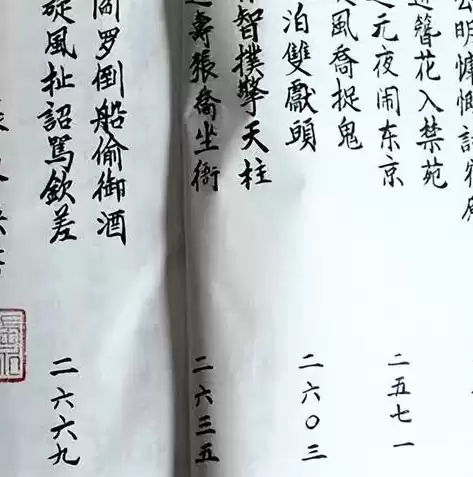 明慷慨話
簪花入禁苑
元夜闹东京
二五七一
風喬捉鬼
泊雙獻頭
二六〇三
智撲擎天柱
壽張喬坐衙
二六三五
罗倒船偷御酒
旋風扯詔罵欽差
二六六九